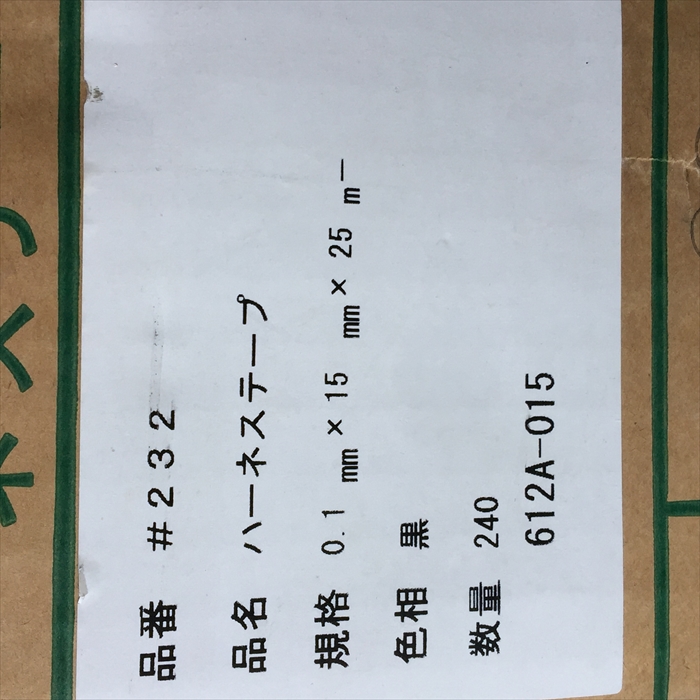 品番 #232
品名 ハーネステープ
規格 0.1 mm×15 mm×25 m
色相 黒
数量 240
612A-015